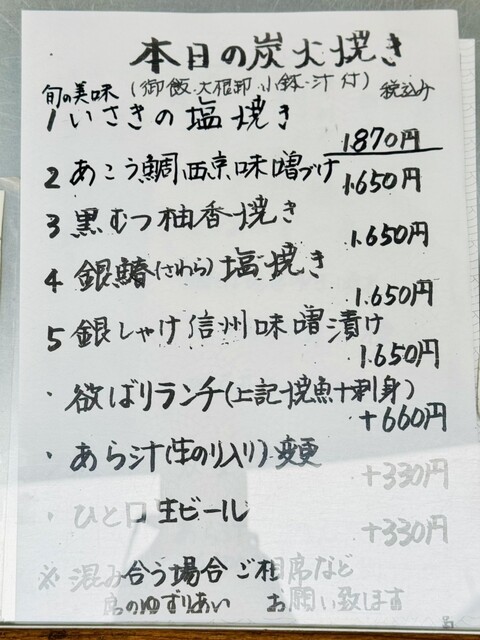 本日の炭火焼き
(御飯・大根卸・小鉢・汁付) 税込み
旬の美味
1 いさきの塩焼き
1870円
2 あこう鯛西京味噌づけ
1.650円
3 黒むつ柚香焼き
1.650円
4 銀鰆(さわら)塩焼き
1.650円
5 銀しゃけ信州味噌漬け
1.650円
・欲ばりランチ(上記焼魚+刺身)
+660円
・あら汁(生のり入り)変更
+330円
・ひと口生ビール
+330円
※混み合う場合ご相席など
席のゆずりあい お願い致します